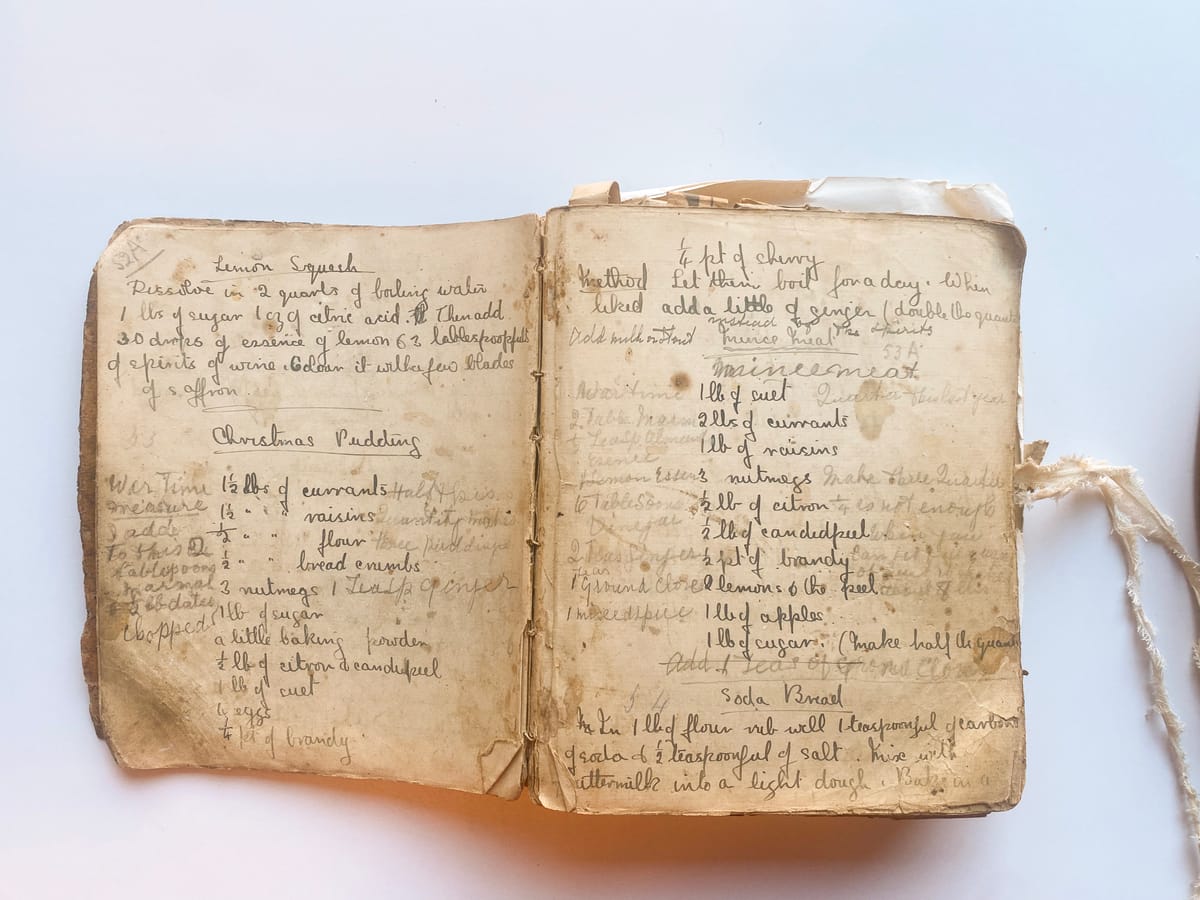 52A
Lemon Squash
Dissolve in 2 quarts of boiling water
1 lbs of sugar 1 oz of citric acid. Then add
30 drops of essence of lemon & 3 tablespoonfuls
of spirits of wine. Colour it with a few blades
of saffron.
53
Christmas Pudding
War Time
measure
I add
to this 2
tablespoons
marmal
dates
chopped
1½ lbs of currants Half this
1½ " " raisins quantity makes
½ " " flour three puddings
½ " " bread crumbs
3 nutmegs 1 Teasp ginger
1 lb of sugar
a little baking powder
½ lb of citron & candidpeel
1 lb of suet
4 eggs
¼ pt of brandy
¼ pt of cherry
Method Let them boil for a day. When
liked add a little of ginger (double the quant
Add milk instead for the spirits
Mince Meat
53A
Mincemeat
War time
2 Table Marm
Teasp Almond
Essence
Lemon Essen
6 Tablespoons
Vinegar
2 Teas Ginger
1 Ground Clove
1 mixed spice
1 lb of suet Quarter this last year
2 lbs of currants
1 lb of raisins
3 nutmegs Make three Quarter
½ lb of citron ¼ is not enough
½ lb of candidpeel when you
½ pt of brandy can get
2 lemons & the peel
1 lb of apples
1 lb of sugar. (Make half the quant
Add 1 Teas of Ground Clove
54
Soda Bread
In 1 lb of flour rub well 1 teaspoonful of carbon
of soda & ½ teaspoonful of salt. Mix with
uttermilk into a light dough. Bake in a